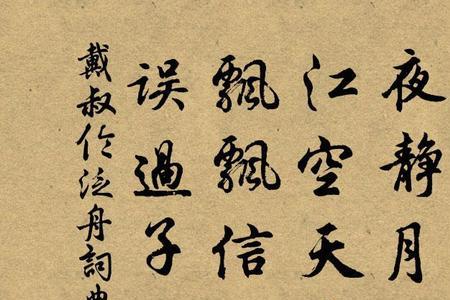 夜静月
江空天
飄飄信
误過子
戴叔伦泛舟詞